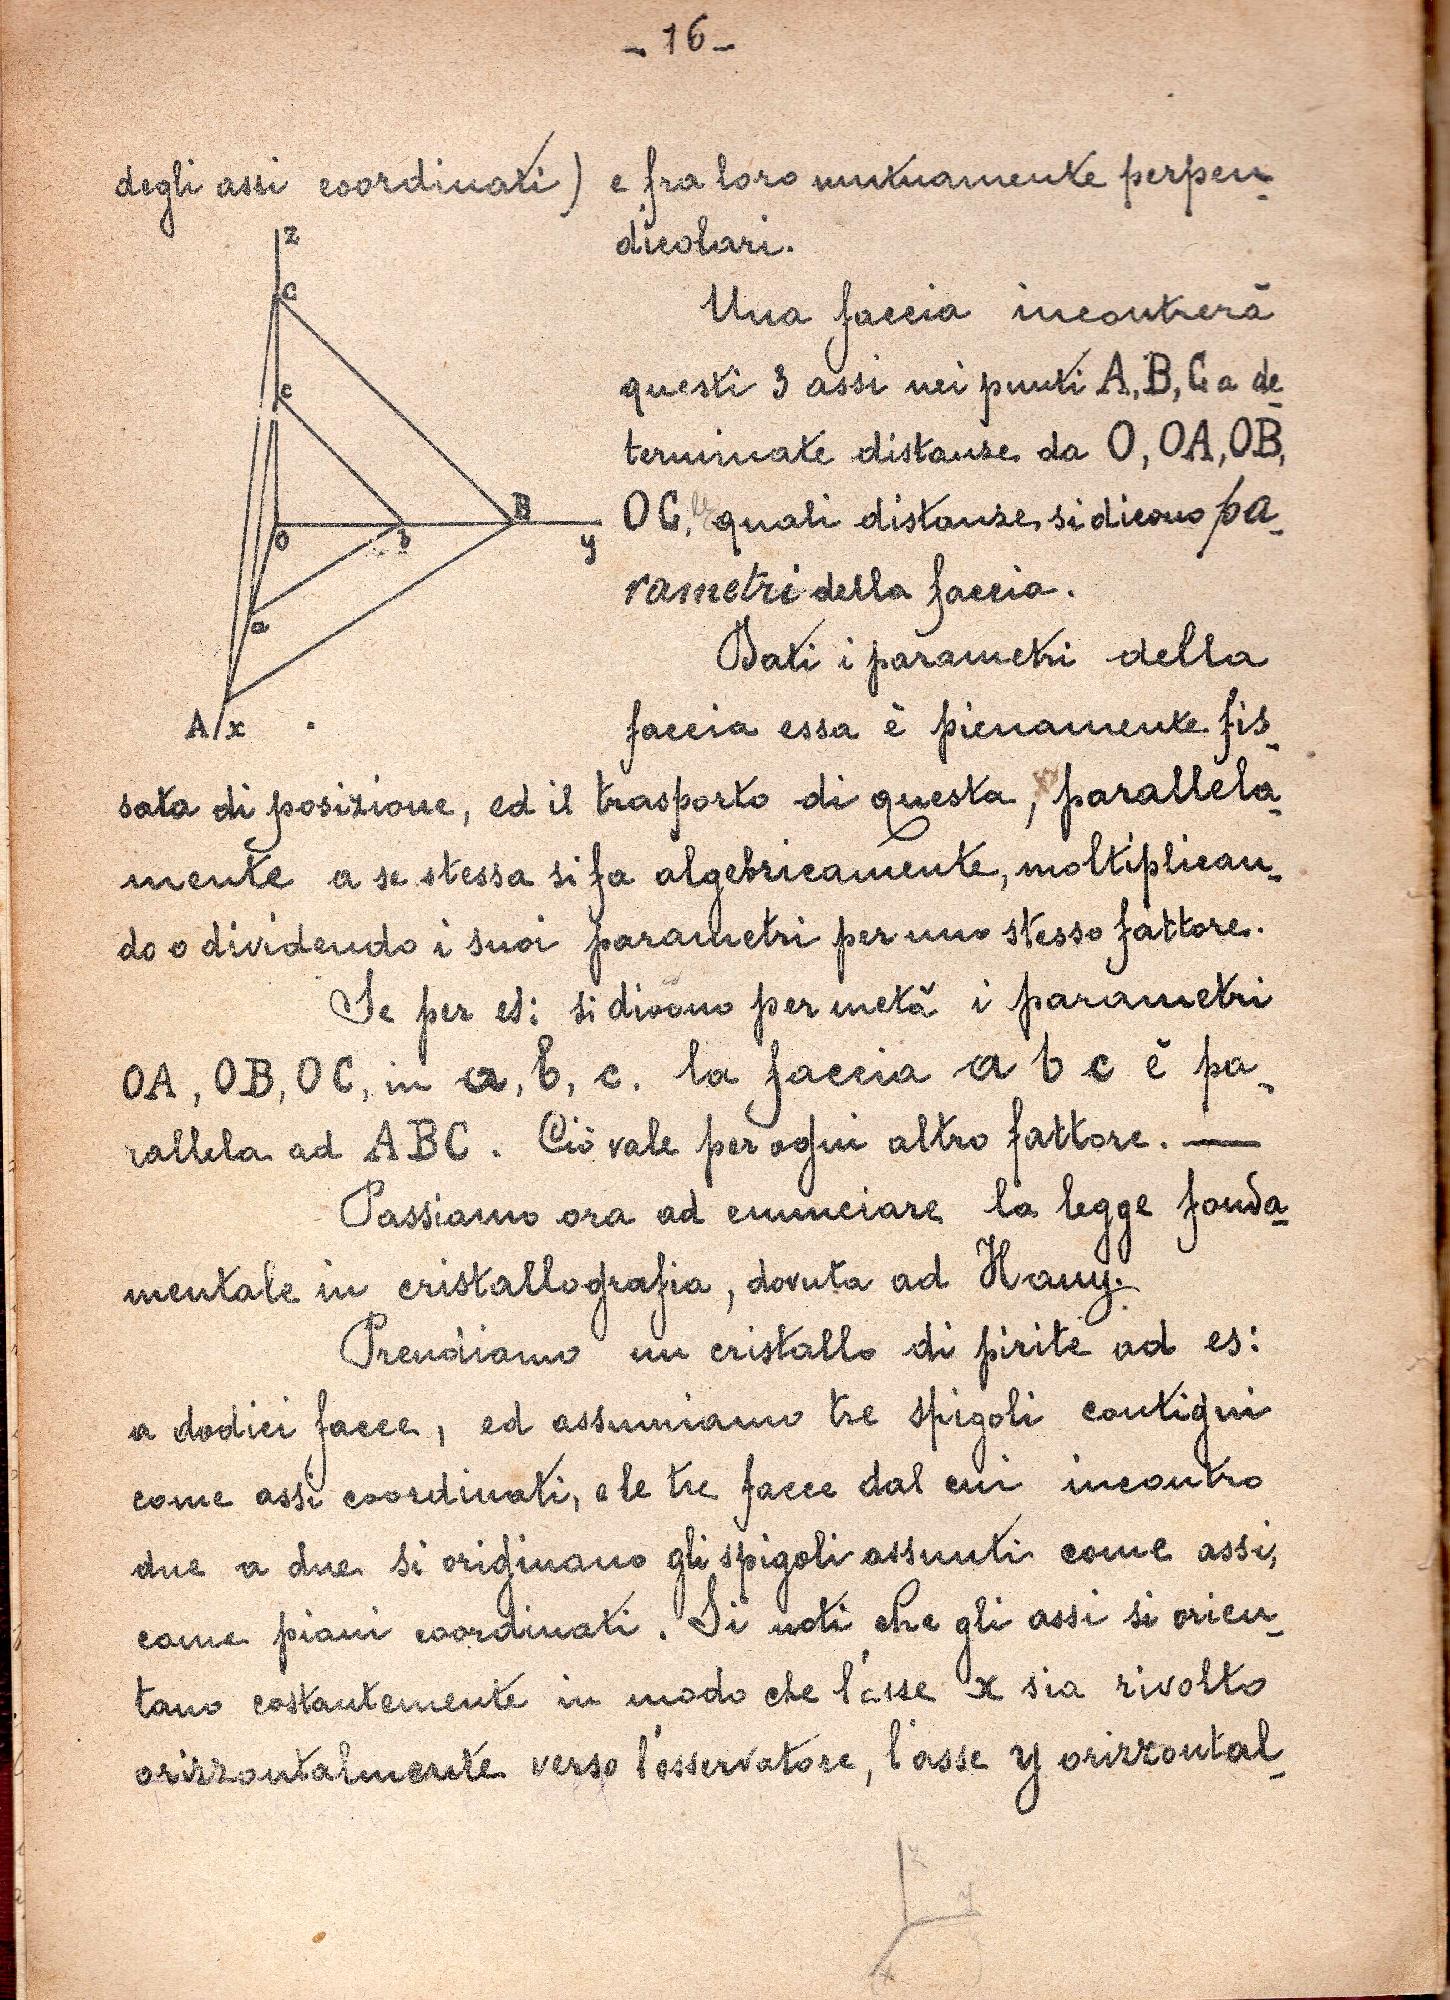 - 16 -
degli assi coordinati) e fra loro mutuamente perpen-
dicolari.
z
C
c
O
b
B
y
a
A
x
Una faccia incontrerà
questi 3 assi nei punti A, B, C a de-
terminate distanze da O, OA, OB,
OC, quali distanze si dicono pa-
rametri della faccia.
Dati i parametri della
faccia essa è pienamente fis-
sata di posizione, ed il trasporto di questa, parallela-
mente a se stessa si fa algebricamente, moltiplican-
do o dividendo i suoi parametri per uno stesso fattore.
Se per es: si dividono per metà i parametri
OA, OB, OC, in a, b, c. la faccia a b c è pa-
rallela ad ABC. Ciò vale per ogni altro fattore. —
Passiamo ora ad enunciare la legge fonda-
mentale in cristallografia, dovuta ad Hauy.
Prendiamo un cristallo di pirite ad es:
a dodici facce, ed assumiamo tre spigoli contigui
come assi coordinati, e le tre facce dal cui incontro
due a due si originano gli spigoli assunti come assi,
come piani coordinati. Si noti che gli assi si orien-
tano costantemente in modo che l'asse x sia rivolto
orizzontalmente verso l'osservatore, l'asse y orizzontal-
z
y
x